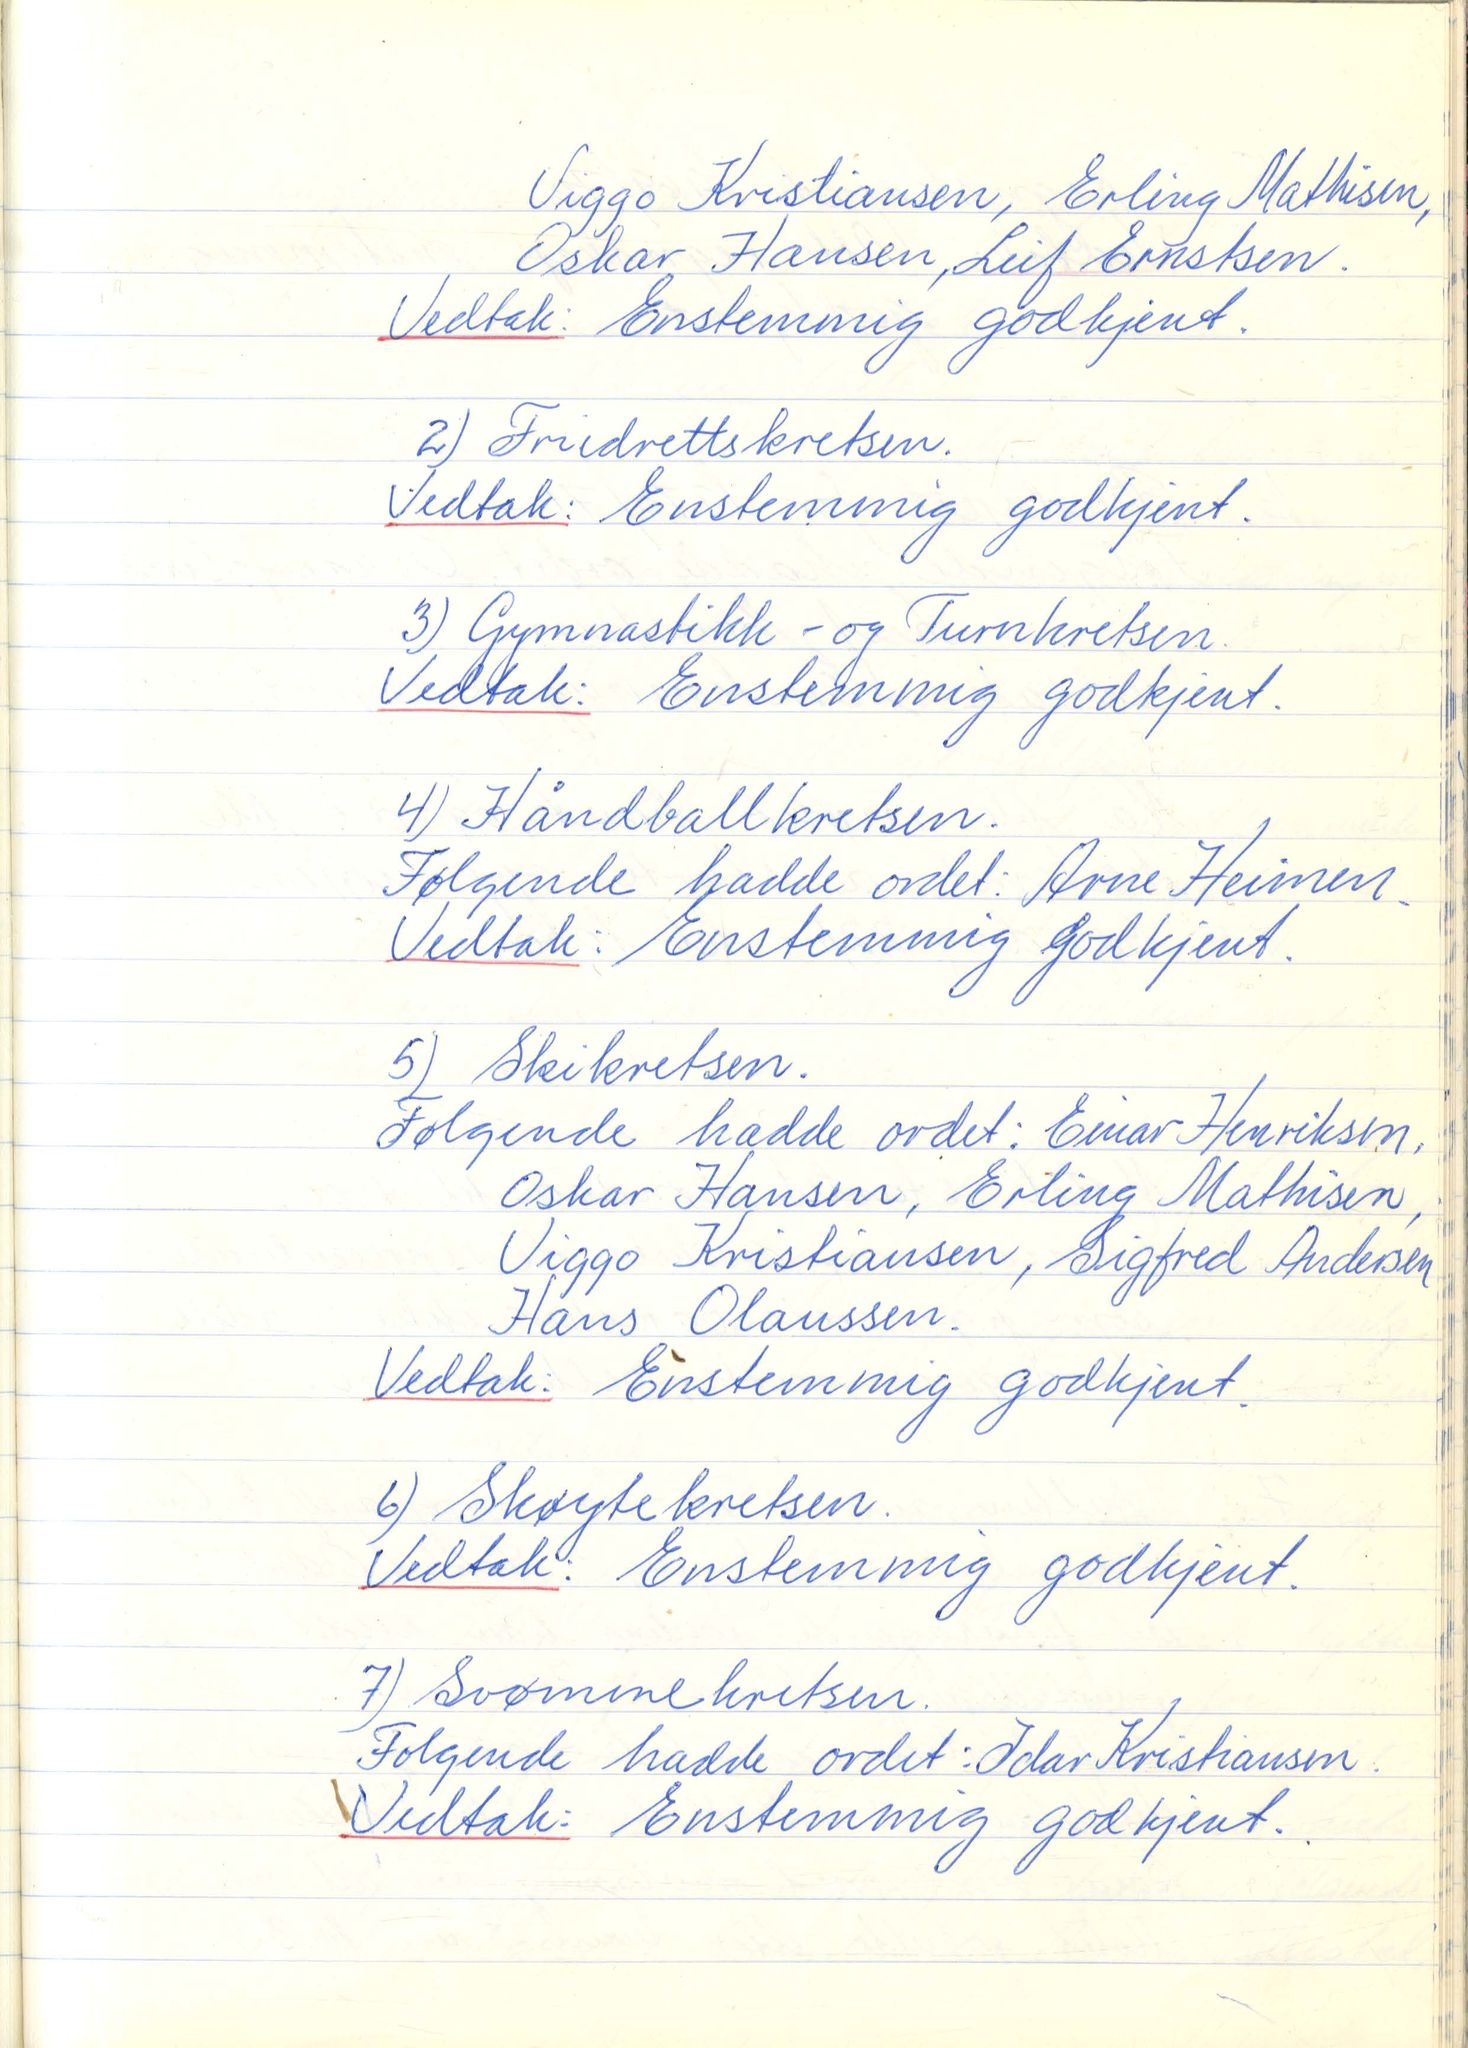 Viggo Kristiansen, Erling Mathisen,
Oskar Hansen, Leif Ernstsen.
Vedtak: Enstemmig godkjent.
2) Friidrettskretsen.
Vedtak: Enstemmig godkjent.
3) Gymnastikk - og Turnkretsen.
Vedtak: Enstemmig godkjent.
4) Håndballkretsen.
Følgende hadde ordet: Arne Heimen.
Vedtak: Enstemmig godkjent.
5) Skikretsen.
Følgende hadde ordet: Einar Henriksen,
Oskar Hansen, Erling Mathisen,
Viggo Kristiansen, Sigfred Andersen
Hans Olaussen.
Vedtak: Enstemmig godkjent.
6) Skøytekretsen.
Vedtak: Enstemmig godkjent.
7) Svømmekretsen.
Følgende hadde ordet: Idar Kristiansen.
Vedtak: Enstemmig godkjent.